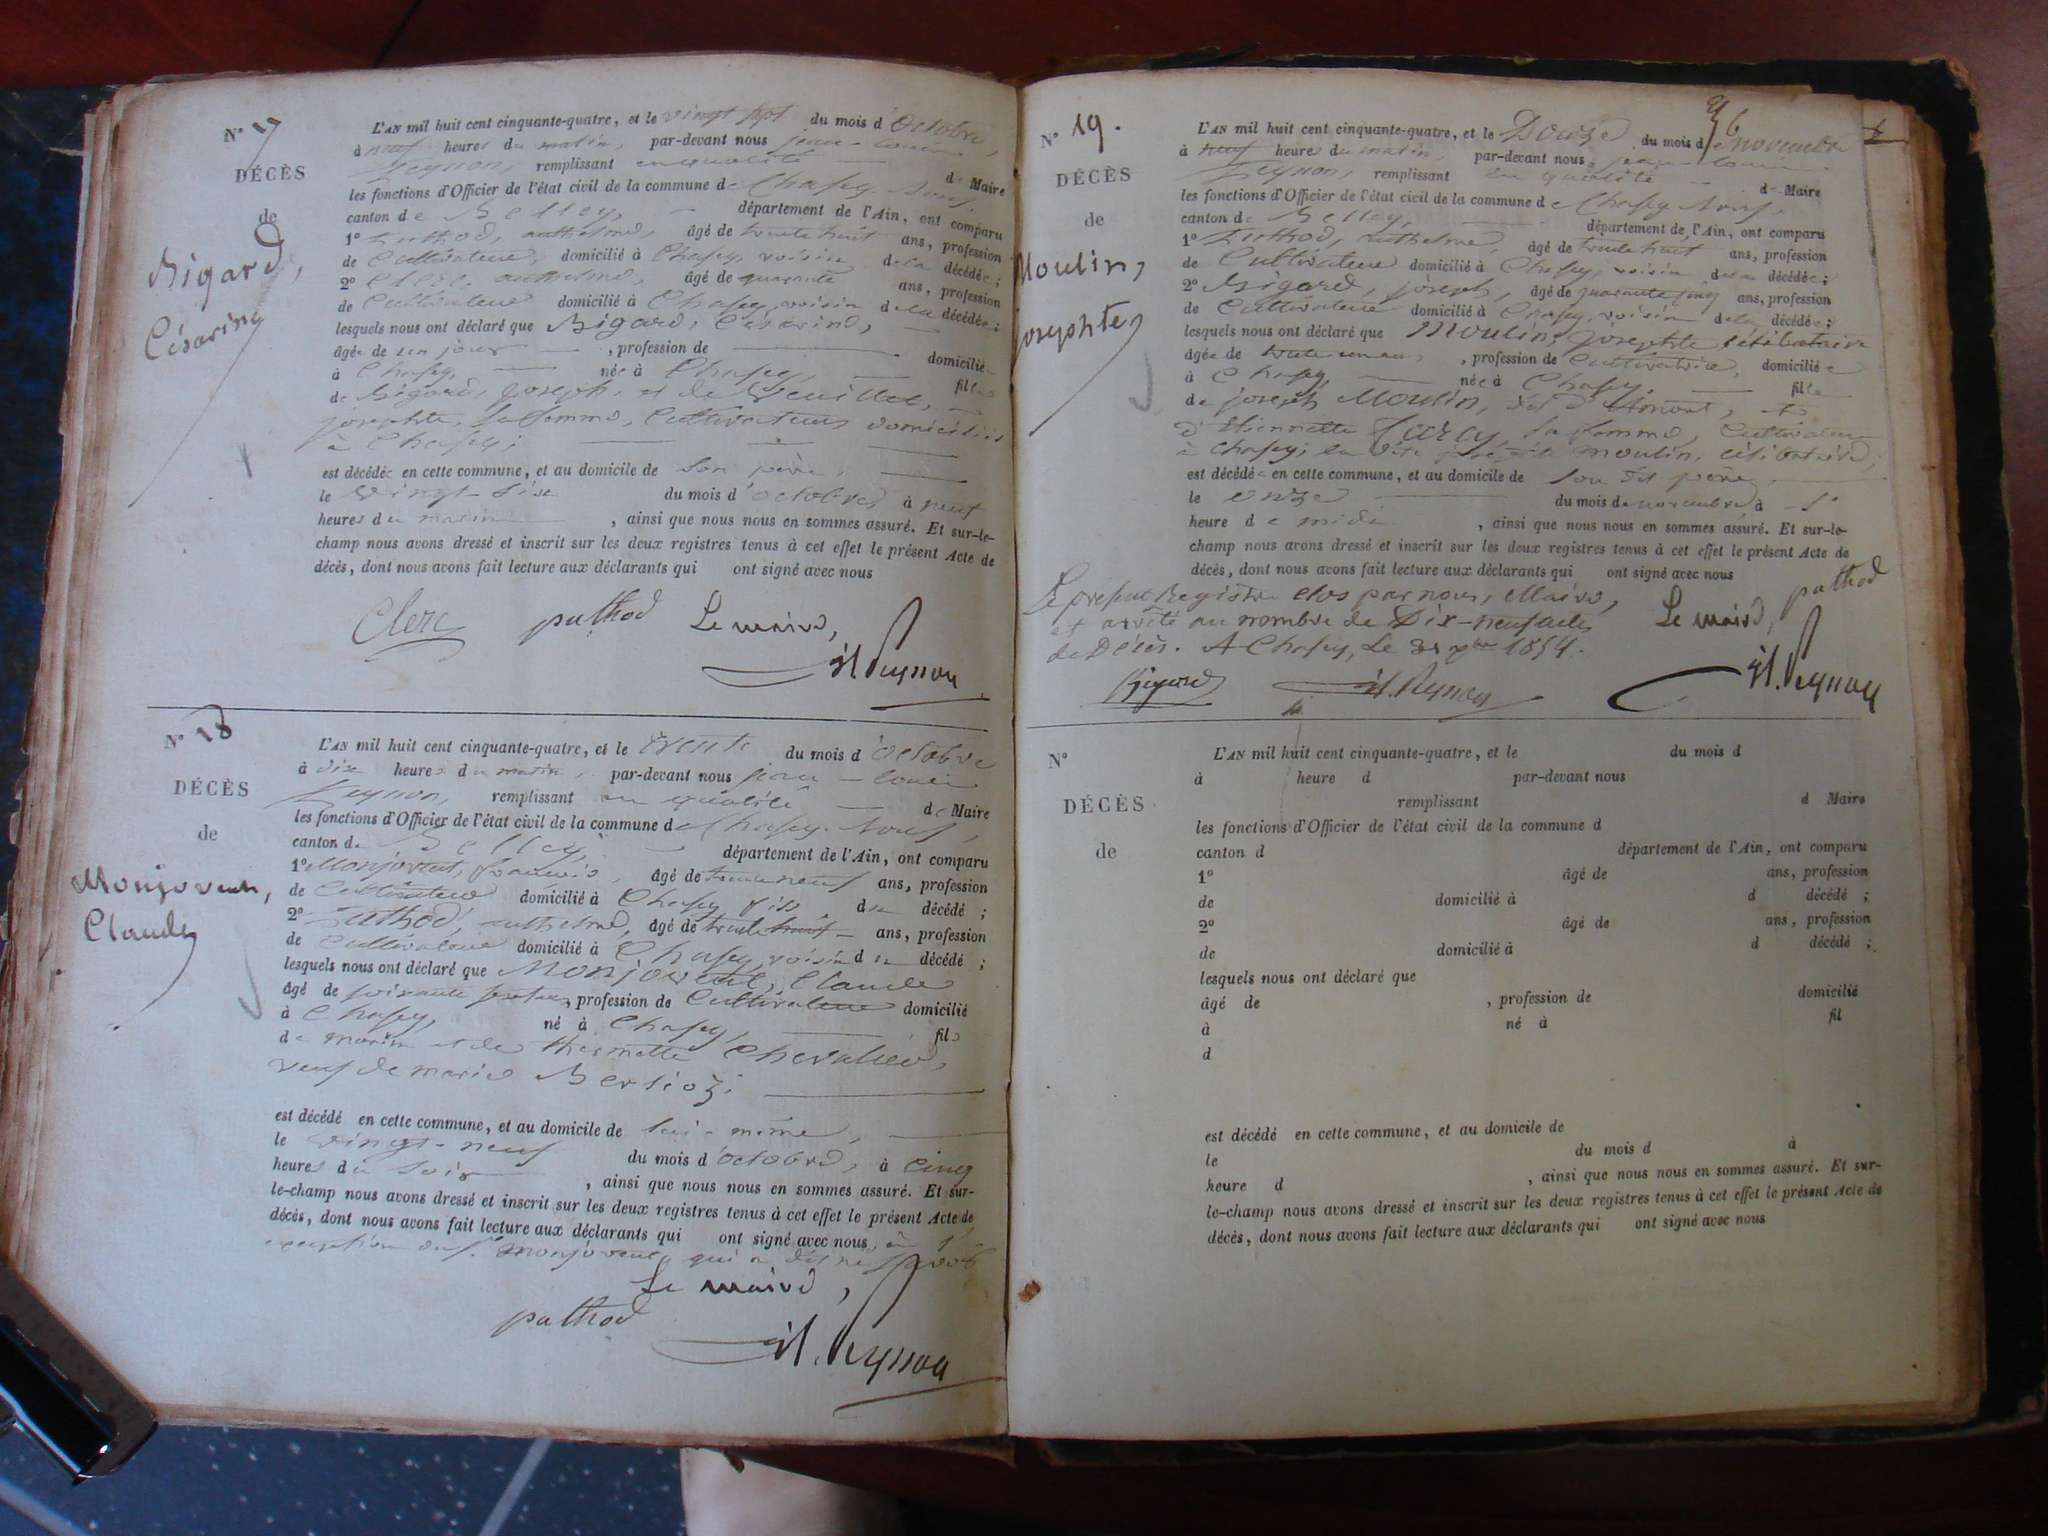 N° 17
DÉCÈS
de
Bigard,
Césarine
L'AN mil huit cent cinquante-quatre, et le vingt sept du mois d'octobre,
à neuf heures du matin, par-devant nous jean-louis
Peynon, remplissant en qualité de Maire
les fonctions d'Officier de l'état civil de la commune de Chasey-Bons,
canton de Belley, département de l'Ain, ont comparu
1° Puthod, anthelme, âgé de trente huit ans, profession
de Cultivateur, domicilié à Chasey, voisin de la décédée;
2° Clerc, anthelme, âgé de quarante ans, profession
de Cultivateur domicilié à Chasey, voisin de la décédée;
lesquels nous ont déclaré que Bigard, Césarine,
âgée de jour , profession de domiciliée
à Chasey, née à Chasey, fille
de Bigard, joseph, et de
josephte, sa femme, Cultivateurs domiciliés
à Chasey;
est décédée en cette commune, et au domicile de son père,
le vingt-six du mois d'octobre à neuf
heures du matin , ainsi que nous nous en sommes assuré. Et sur-le-
champ nous avons dressé et inscrit sur les deux registres tenus à cet effet le présent Acte de
décès, dont nous avons fait lecture aux déclarants qui ont signé avec nous
Clerc puthod Le maire,
jl. Peynon
N° 18
DÉCÈS
de
Monjovent,
Claude
L'AN mil huit cent cinquante-quatre, et le trente du mois d'octobre
à dix heures du matin, par-devant nous jean-louis
Peynon, remplissant en qualité de Maire
les fonctions d'Officier de l'état civil de la commune de Chasey-Bons,
canton de Belley, département de l'Ain, ont comparu
1° Monjovent, françois, âgé de trente neuf ans, profession
de Cultivateur domicilié à Chasey fils du décédé ;
2° Puthod, anthelme, âgé de trente huit ans, profession
de Cultivateur domicilié à Chasey, voisin du décédé ;
lesquels nous ont déclaré que Monjovent, Claude
âgé de soixante , profession de Cultivateur domicilié
à Chasey, né à Chasey, fils
de et de Chevalier,
veuf de marie Berlioz;
est décédé en cette commune, et au domicile de lui-même,
le vingt-neuf du mois d'octobre, à cinq
heures du soir , ainsi que nous nous en sommes assuré. Et sur-
le-champ nous avons dressé et inscrit sur les deux registres tenus à cet effet le présent Acte de
décès, dont nous avons fait lecture aux déclarants qui ont signé avec nous, à l'
exception dud. monjovent, qui a dit ne savoir
Le maire,
puthod
jl. Peynon
N° 19.
DÉCÈS
de
Moulin,
josephte
L'AN mil huit cent cinquante-quatre, et le Douze du mois de novembre
à neuf heure du matin, par-devant nous jean-louis
Peynon, remplissant en qualité de Maire
les fonctions d'Officier de l'état civil de la commune de Chasey Bons,
canton de Belley, département de l'Ain, ont comparu
1° Puthod, anthelme, âgé de trente huit ans, profession
de Cultivateur domicilié à Chasey, voisin de la décédée;
2° Bigard, joseph, âgé de quarante cinq ans, profession
de Cultivateur domicilié à Chasey, voisin de la décédée;
lesquels nous ont déclaré que Moulin, josephte célibataire
âgée de trente un ans , profession de Cultivatrice, domiciliée
à Chasey, née à Chasey, fille
de joseph Moulin, dit et
d'Etiennette sa femme, Cultivateurs
à Chasey; la dite josephte moulin, célibataire;
est décédée en cette commune, et au domicile de son dit père,
le onze du mois de novembre à
heure de midi , ainsi que nous nous en sommes assuré. Et sur-le-
champ nous avons dressé et inscrit sur les deux registres tenus à cet effet le présent Acte de
décès, dont nous avons fait lecture aux déclarants qui ont signé avec nous
puthod
Le présent Registre clos par nous, Maire,
et arrêté au nombre de Dix-neuf actes
de Décès. A Chasey, Le 31 Xbre 1854.
Le maire,
Bigard jl. Peynon jl. Peynon
N°
DÉCÈS
de
L'AN mil huit cent cinquante-quatre, et le du mois d
à heure d par-devant nous
remplissant d Maire
les fonctions d'Officier de l'état civil de la commune d
canton d département de l'Ain, ont comparu
1° âgé de ans, profession
de domicilié à d décédé ;
2° âgé de ans, profession
de domicilié à d décédé ;
lesquels nous ont déclaré que
âgé de , profession de domicilié
à né à fil
d
est décédé en cette commune, et au domicile de
le du mois d à
heure d , ainsi que nous nous en sommes assuré. Et sur-
le-champ nous avons dressé et inscrit sur les deux registres tenus à cet effet le présent Acte de
décès, dont nous avons fait lecture aux déclarants qui ont signé avec nous